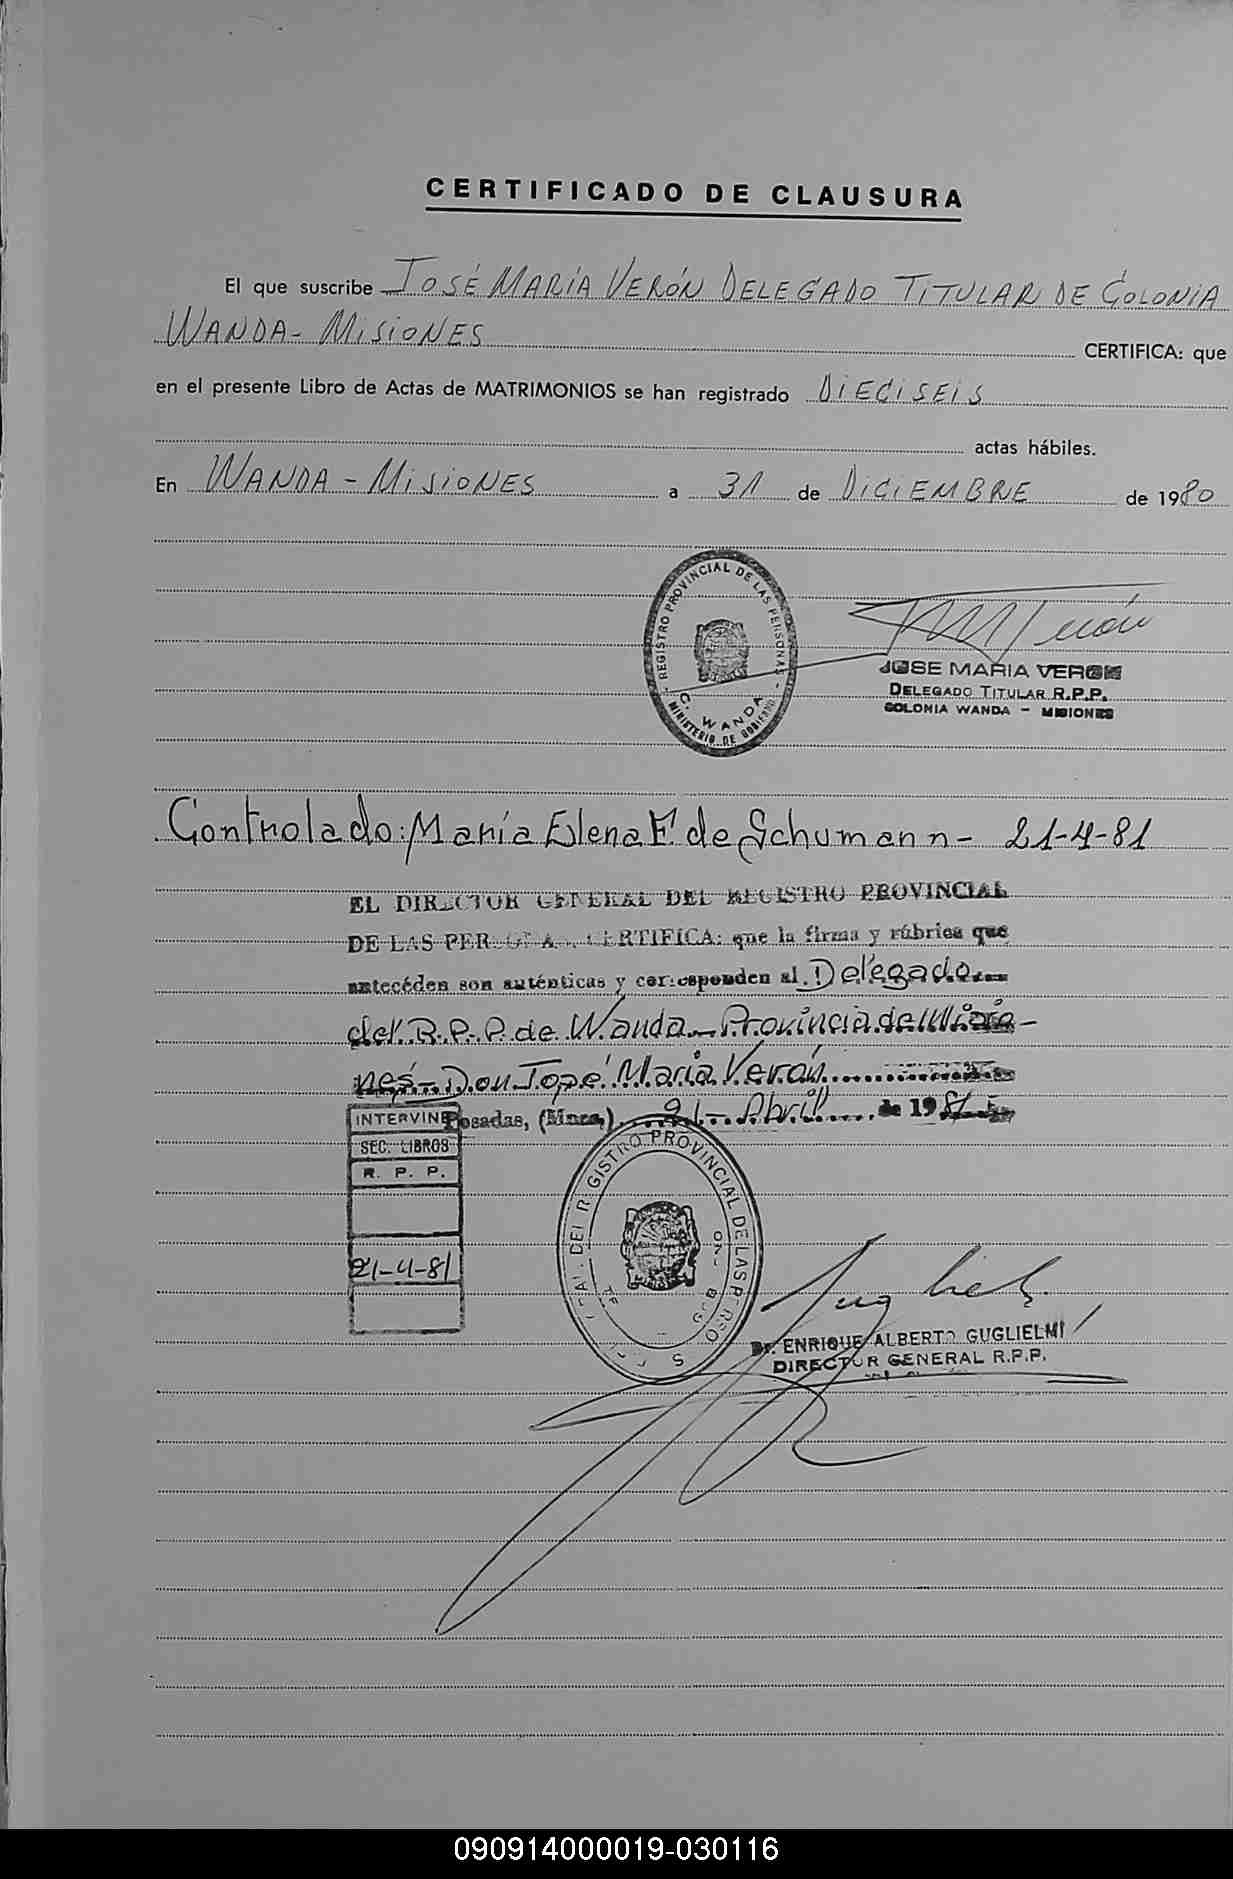 CERTIFICADO DE CLAUSURA
El que suscribe JOSÉ MARÍA VERÓN DELEGADO TITULAR DE COLONIA
WANDA - MISIONES CERTIFICA: que
en el presente Libro de Actas de MATRIMONIOS se han registrado DIECISEIS
actas hábiles.
En WANDA - MISIONES a 31 de DICIEMBRE de 1980
REGISTRO PROVINCIAL DE LAS PERSONAS -
C. WANDA
MINISTERIO DE GOBIERNO
JOSE MARIA VERON
DELEGADO TITULAR R.P.P.
COLONIA WANDA - MISIONES
Controlado: María Elena F. de Schumann - 21-4-81
EL DIRECTOR GENERAL DEL REGISTRO PROVINCIAL
DE LAS PERSONAS CERTIFICA: que la firma y rúbrica que
antecéden son auténticas y corresponden al Delegado
del R.P.P. de Wanda - Provincia de Misio-
nes - Don José María Verón
Posadas, (Mnes.) 21 - Abril de 1981
INTERVINO
SEC. LIBROS
R. P. P.
21-4-81
DEL REGISTRO PROVINCIAL DE LAS PERSO
Dr. ENRIQUE ALBERTO GUGLIELMI
DIRECTOR GENERAL R.P.P.
090914000019-030116